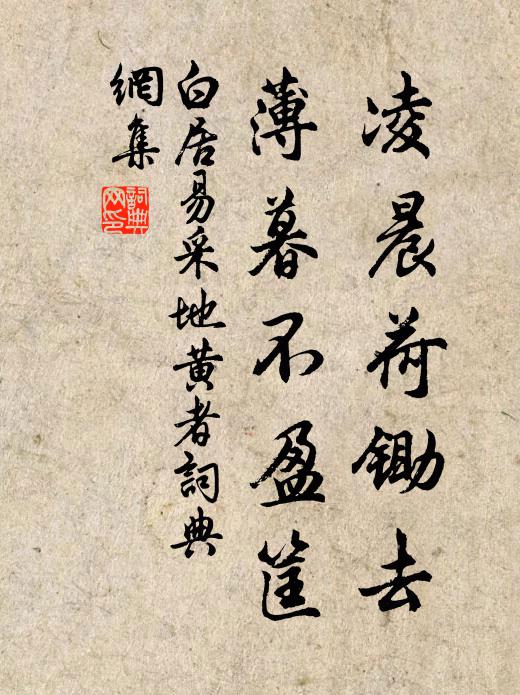 凌晨荷鋤去
薄暮不盈筐
白居易采地黄者詞典
網集
詞典
网印